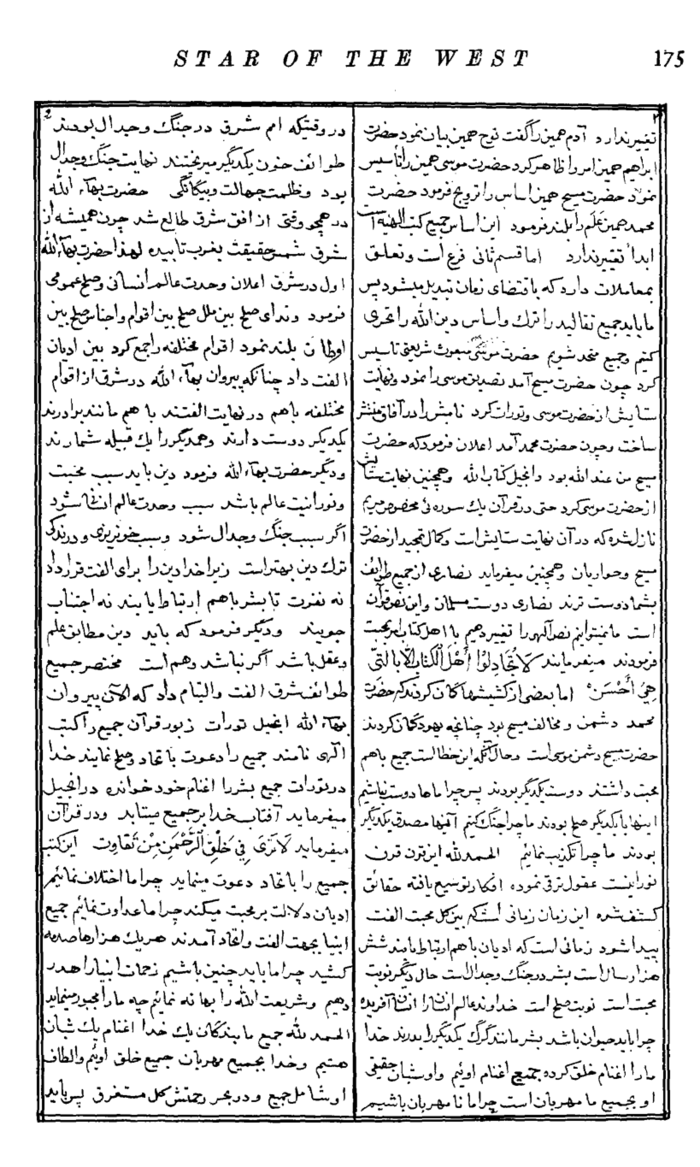 STAR OF THE WEST 175
تغییر ندارد آدم همین را گفت نوح همین بیان نمود حضرت
ابراهیم همین امر را ظاهر کرد حضرت موسی همین را تأسیس
نمود حضرت مسیح همین اساس را ترویج فرمود حضرت
محمد همین علم را بلند فرمود این اساس جمیع کتب الهیه است
ابدا تغییر ندارد اما قسم ثانی فرع است و تعلق
بمعاملات دارد که باقتضای زمان تبدیل میشود پس
ما باید جمیع تقالید را ترک و اساس دین الله را تحری
کنیم و جمیع متحد شویم حضرت موسی مبعوث شریعتی تاسیس
کرد چون حضرت مسیح آمد تصدیق موسی را نمود و نهایت
ستایش از حضرت موسی و تورات کرد نامش را در آفاق منتشر
ساخت و چون حضرت محمد آمد اعلان فرمود که حضرت
مسیح من عند الله بود و انجیل کتاب الله و همچنین نهایت ستایش
از حضرت موسی کرد حتی در قرآن یک سوره ئی مخصوص مریم
نازل شده که در آن نهایت ستایش است و کمال تمجید از حضرت
مسیح و حواریان و همچنین میفرماید نصاری از جمیع طوایف
بشما دوست ترند نصاری دوست مسلمان و این نص قرآن
است ما نمیتوانیم نص الهی را تغییر دهیم با اهل کتاب امر بمحبت
فرمودند میفرمایند لَا تُجَادِلُوا أَهْلَ الْكِتَابِ إِلَّا بِالَّتِي
هِيَ أَحْسَنُ اما بعضی از کشیشها گمان کردند که حضرت
محمد دشمن و مخالف مسیح بود چنانچه یهود گمان کردند
حضرت مسیح دشمن موسی است و حال آنکه این خطا است جمیع باهم
محبت داشتند دوست یکدیگر بودند پس چرا ماها دوست نباشیم
اینها با یکدیگر صلح بودند ما چرا جنگ کنیم آنها مصدق یکدیگر
بودند ما چرا تکذیب نمائیم الحمد لله این قرن قرن
نورانیست عقول ترقی نموده افکار توسیع یافته حقائق
کشف شده این زمان زمانی است که بین کل محبت الفت
پیدا شود زمانی است که ادیان باهم ارتباط یابند شش
هزار سال است بشر در جنگ و جدال است حال دیگر نوبت
محبت است نوبت صلح است خداوند عالم انسان را انسان آفریده
چرا باید حیوان باشد بشر مانند گرگ یکدیگر را بدرند خدا
ما را اغنام خلق کرده جمیع اغنام اوئیم و او شبان حقیقی
او بجمیع ما مهربان است چرا ما نا مهربان باشیم
در وقتیکه امم شرق در جنگ و جدال بودند
طوائف خون یکدیگر میریختند نهایت جنگ و جدال
بود و ظلمت جهالت و بیگانگی حضرت بهاء الله
در همچو وقتی از افق شرق طالع شد چون همیشه از
شرق شمس حقیقت بغرب تابیده لهذا حضرت بهاء الله
اول در شرق اعلان وحدت عالم انسانی و صلح عمومی
فرمود و ندای صلح بین ملل صلح بین اقوام و اجناس صلح بین
اوطان بلند نمود اقوام مختلفه را جمع کرد بین ادیان
الفت داد چنانکه پیروان بهاء الله در شرق از اقوام
مختلفه باهم در نهایت الفتند با هم مانند برادرند
یکدیگر دوست دارند و همدیگر را یک قبیله شمارند
و دیگر حضرت بهاء الله فرمود دین باید سبب محبت
و نورانیت عالم باشد سبب وحدت عالم انسانی شود
اگر سبب جنگ و جدال شود و سبب خونریزی و درندگی
ترک دین بهتر است زیرا خدا دین را برای الفت قرار داد
نه نفرت تا بشر باهم ارتباط یابند نه اجتناب
جویند و دیگر فرمود که باید دین مطابق علم
و عقل باشد اگر نباشد وهم است مختصر جمیع
طوائف شرق الفت و التیام داد که الآن پیروان
بهاء الله انجیل تورات زبور قرآن جمیع را کتب
الهی نامند جمیع را دعوت باتحاد و صلح نمایند خدا
در تورات جمیع بشر را اغنام خود خوانده در انجیل
میفرماید آفتاب خدا بر جمیع میتابد و در قرآن
میفرماید لَا تَرَى فِي خَلْقِ الرَّحْمَنِ مِنْ تَفَاوُت این کتب
جمیع را باتحاد دعوت مینماید چرا ما اختلاف نمائیم
ادیان دلالت بر محبت میکند چرا ما عداوت نمائیم جمیع
انبیا بجهت الفت و اتحاد آمدند هر یک هزارها صدمه
کشید چرا ما باید چنین باشیم زحمات انبیا را هدر
دهیم و شریعت الله را بهانه نمائیم چه ما را مجبور مینماید
الحمد لله جمیع ما بندگان یک خدا اغنام یک شبان
هستیم و خدا بجمیع مهربان جمیع خلق اوئیم و الطاف
او شامل جمیع و در بحر رحمتش کل مستغرق پس باید